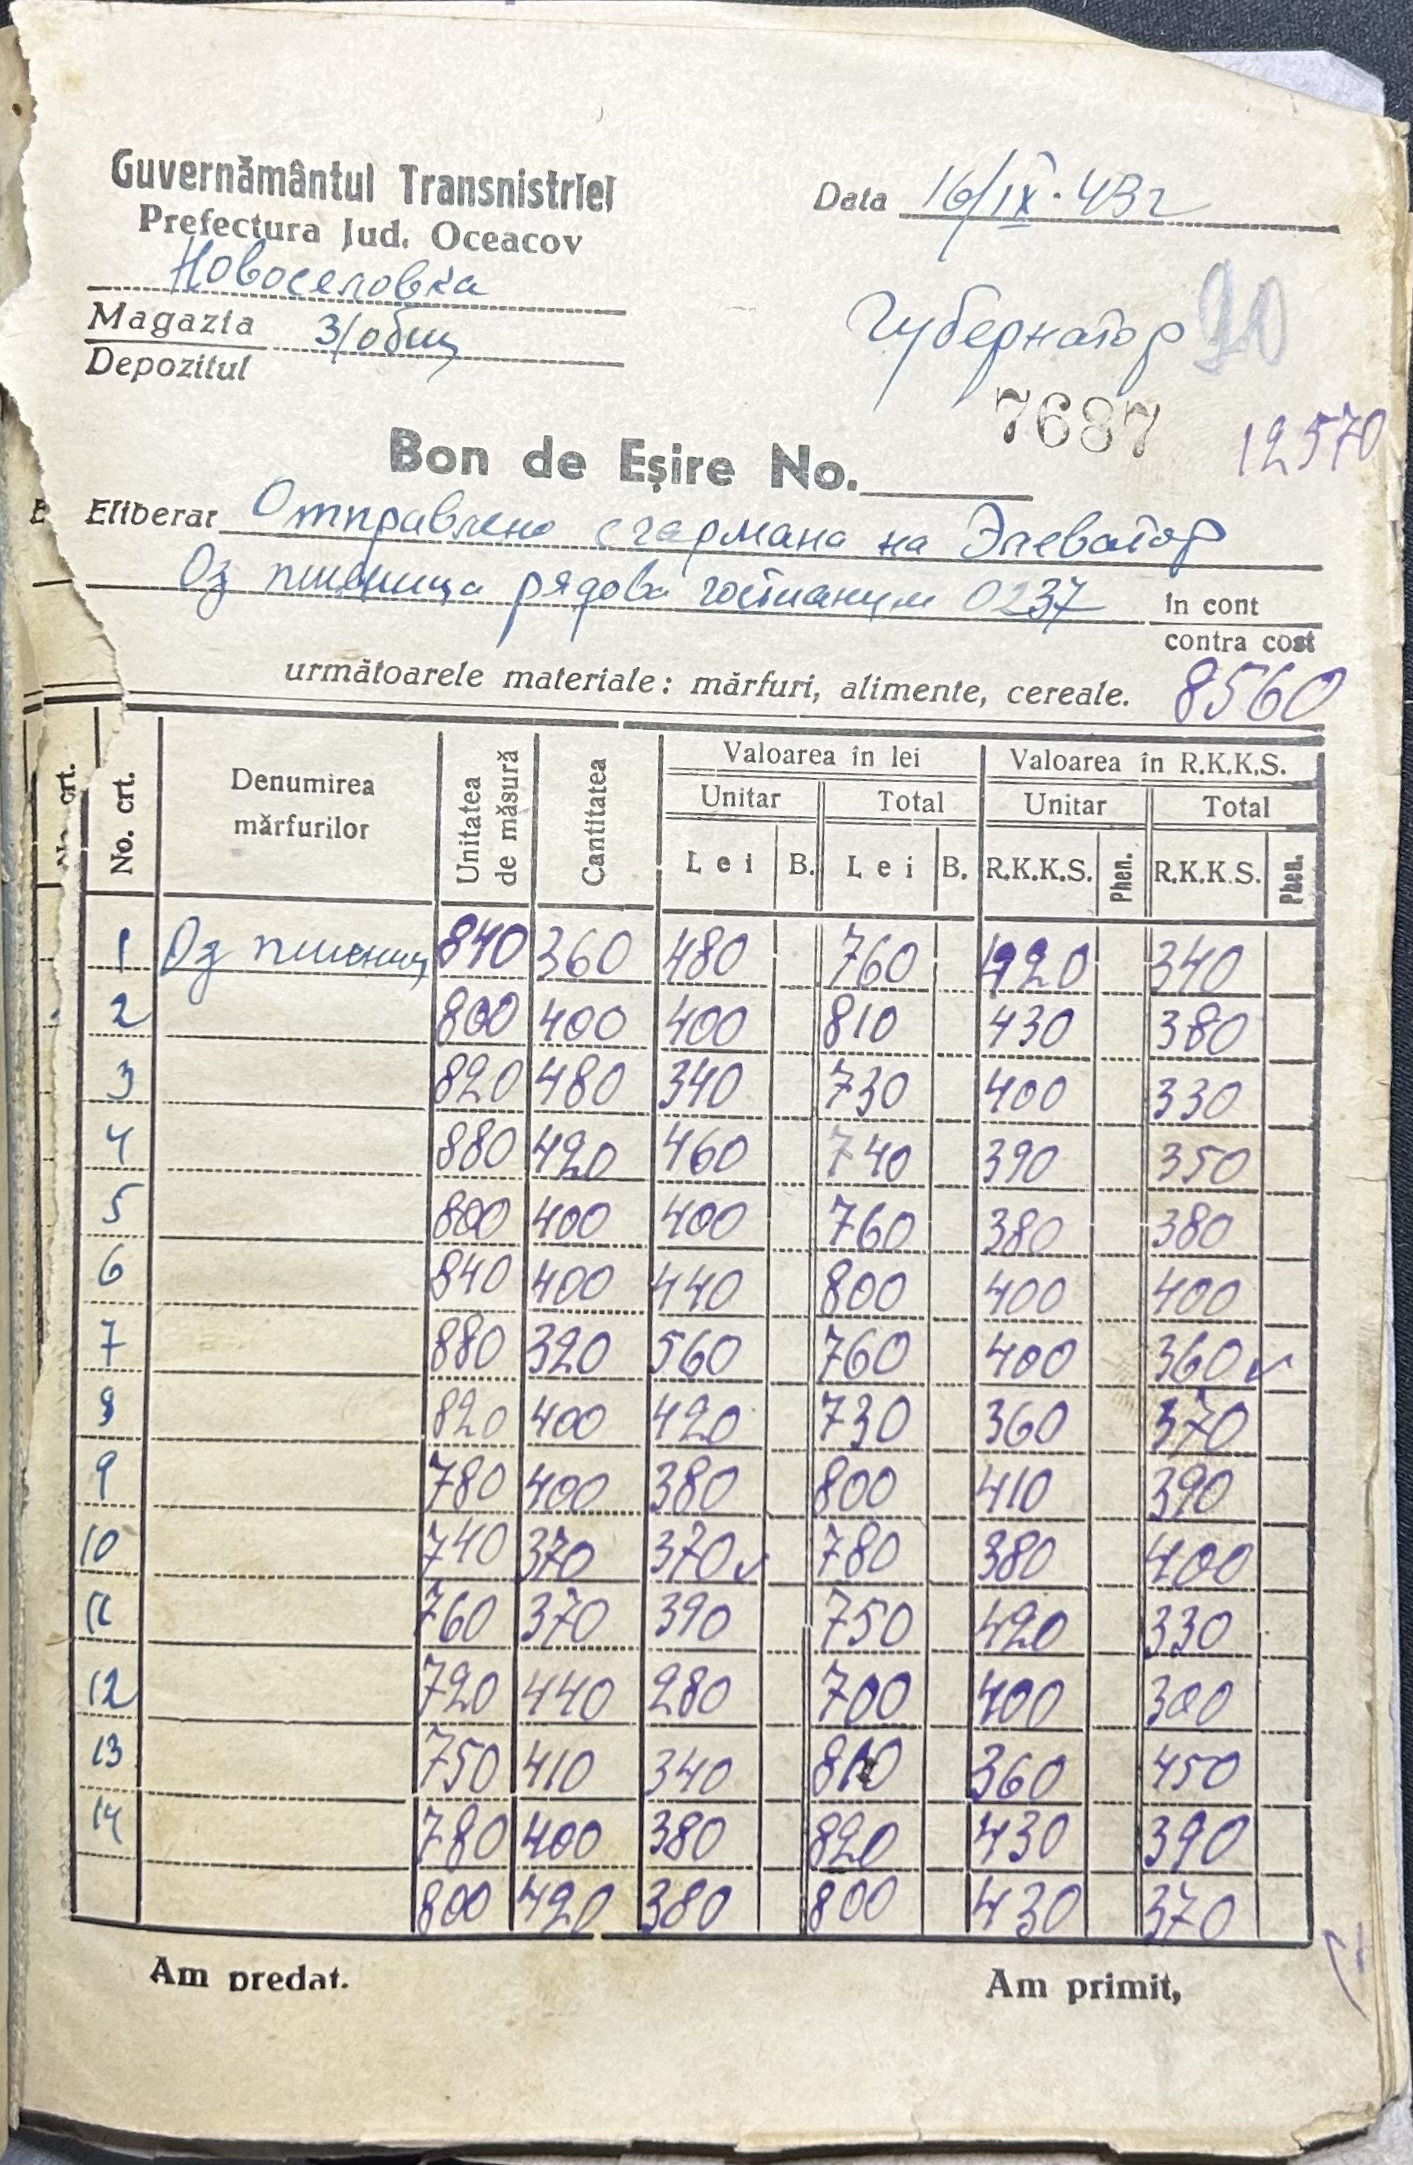 Guvernământul Transnistriei
Prefectura Jud. Oceacov
Data 16/IX·43г
Новоселовка
Magazia 3/общ
Depozitul
Губернатор 20
7687
12570
Bon de Eşire No.
Eliberat Отправлено с гармана на Элеватор
Оз пшеница рядова 0237 în cont
contra cost
următoarele materiale: mărfuri, alimente, cereale. 8560
No. crt. Denumirea mărfurilor Unitatea de măsură Cantitatea Valoarea în lei Valoarea în R.K.K.S.
Unitar Total Unitar Total
Lei B. Lei B. R.K.K.S. Phen. R.K.K.S. Phen.
1 Оз пшениц 840 360 480 760 420 340
2 800 400 400 810 430 380
3 820 480 340 730 400 330
4 880 420 460 740 390 350
5 800 400 400 760 380 380
6 840 400 440 800 400 400
7 880 320 560 760 400 360 ✓
8 820 400 420 730 360 370
9 780 400 380 800 410 390
10 740 370 370 ✓ 780 380 400
11 760 370 390 750 420 330
12 720 440 280 700 400 300
13 750 410 340 810 360 450
14 780 400 380 820 430 390
800 420 380 800 430 370
Am predat.
Am primit,